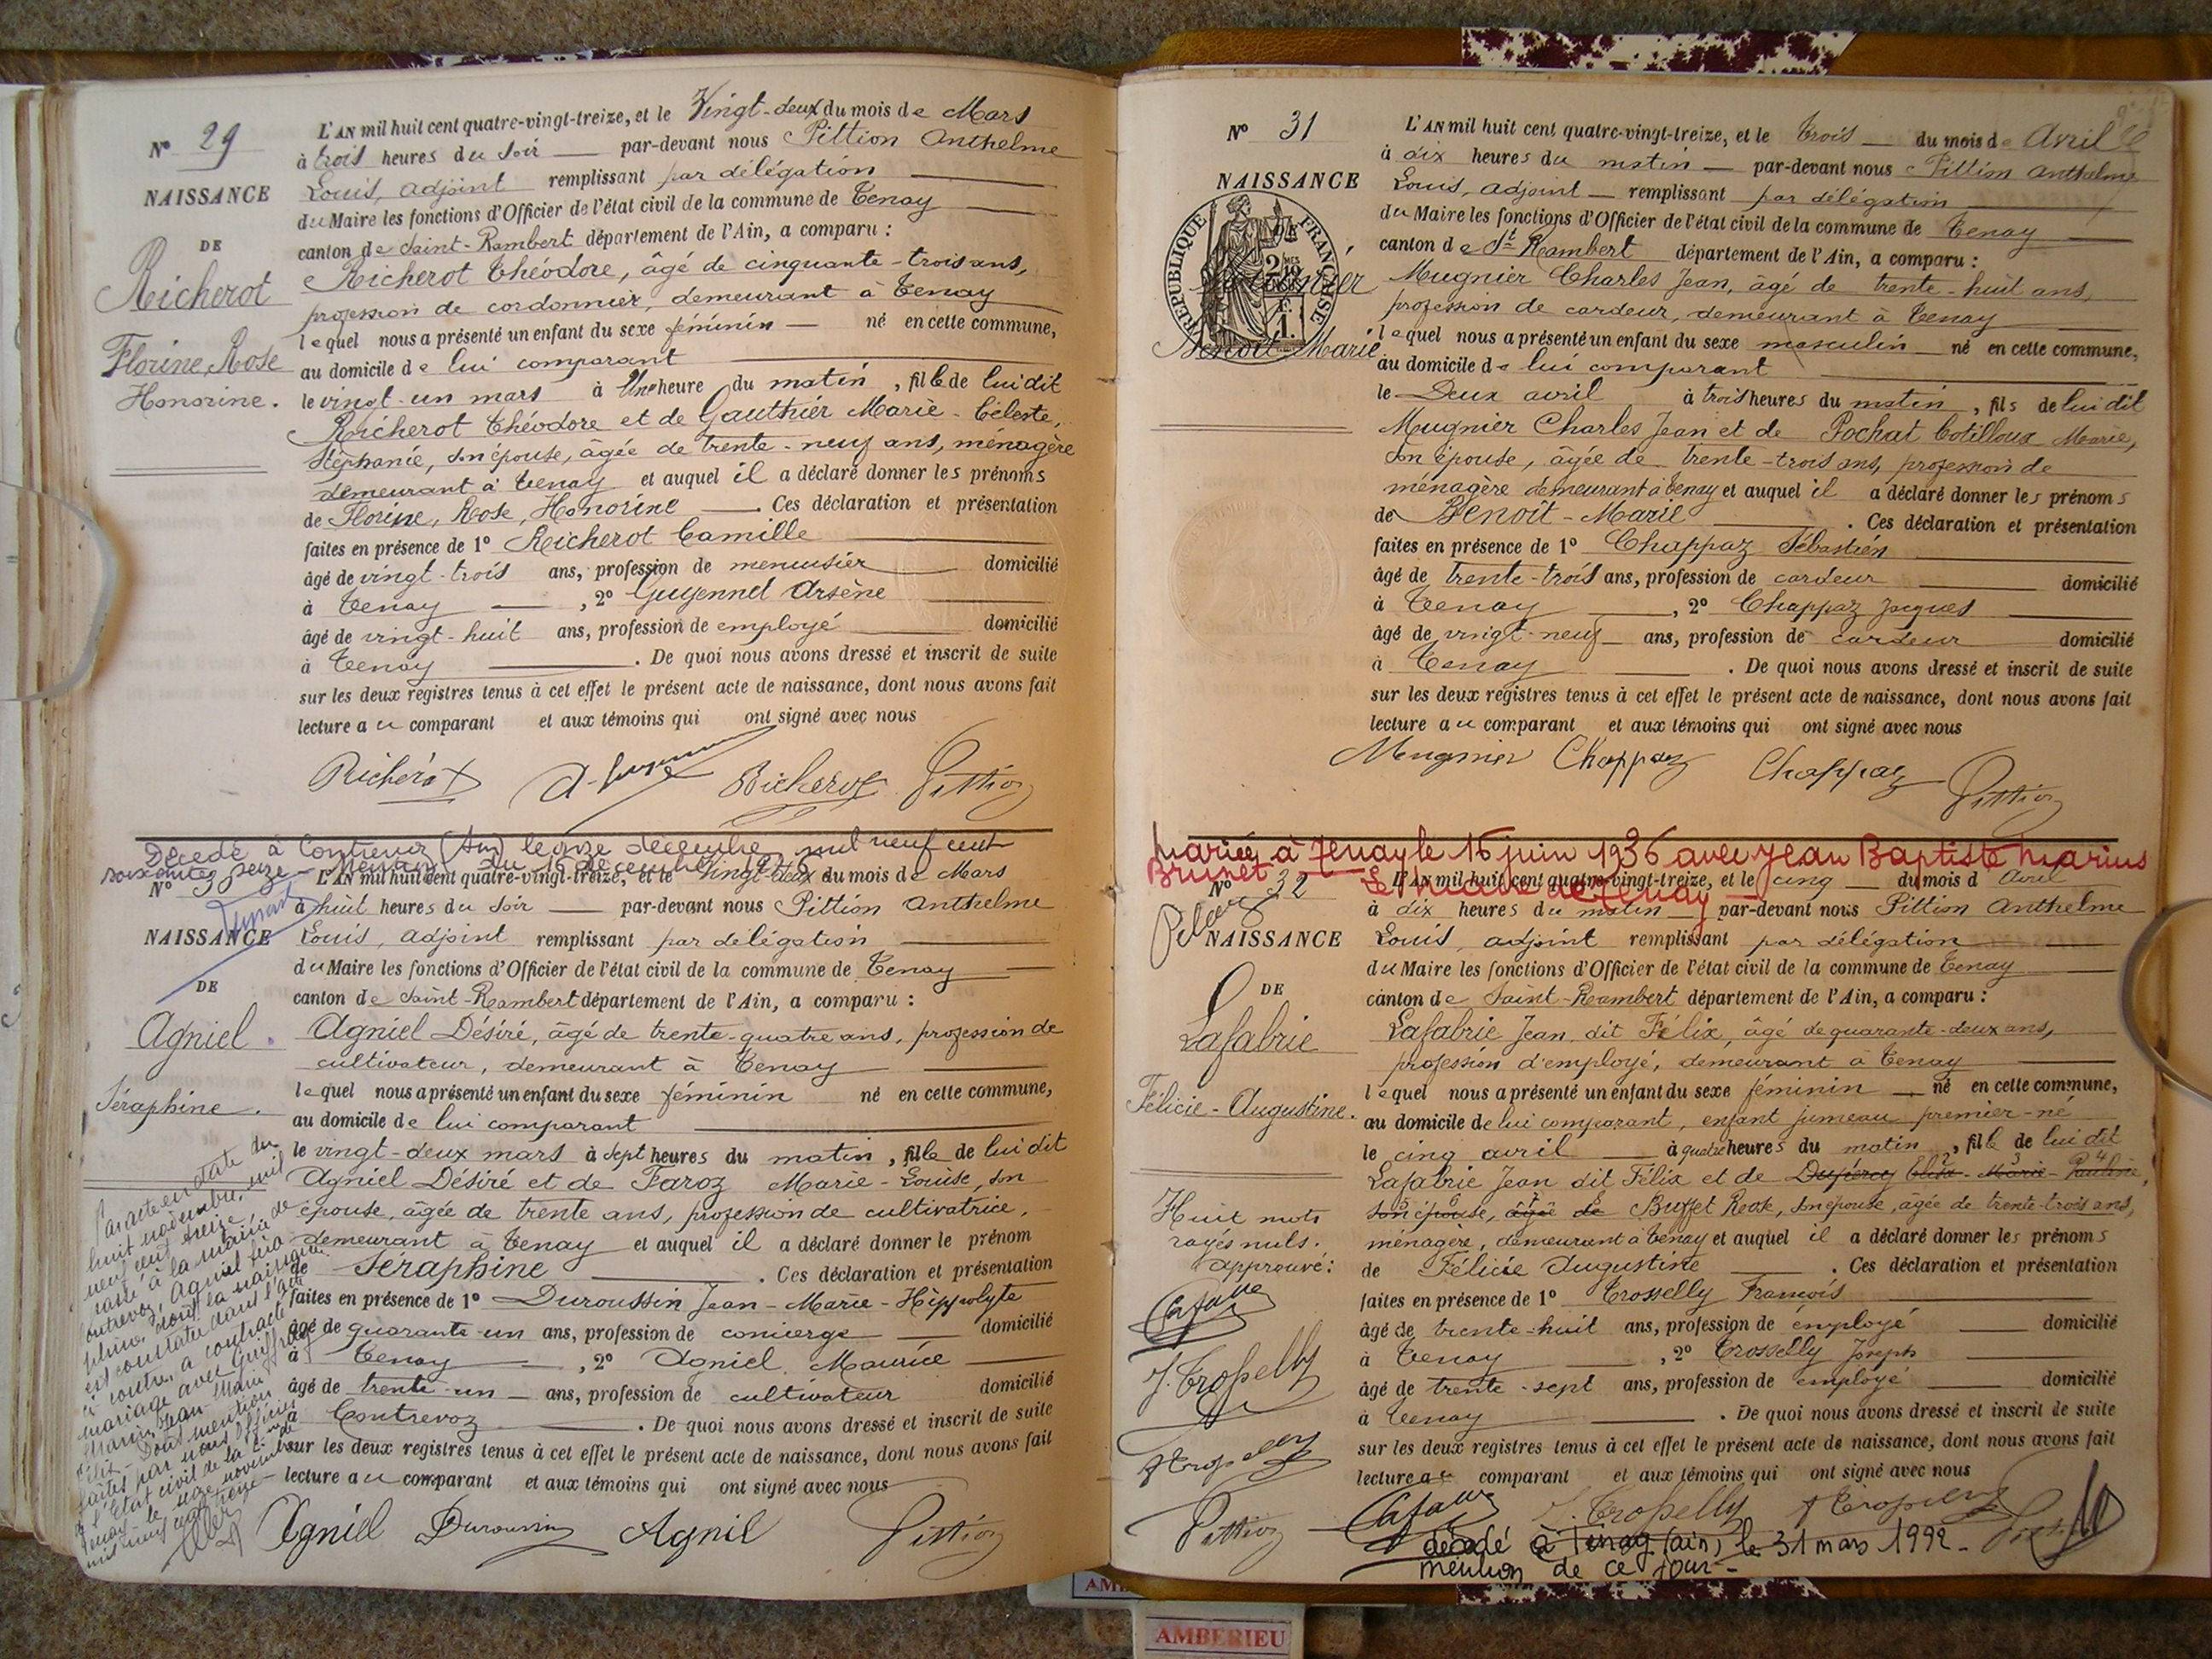 N° 29
NAISSANCE
DE
Richerot
Florine, Rose
Honorine.
L'AN mil huit cent quatre-vingt-treize, et le Vingt-deux du mois de Mars
à trois heures du soir — par-devant nous Pittion Anthelme
Louis, adjoint remplissant par délégation
du Maire les fonctions d'Officier de l'état civil de la commune de Tenay
canton de Saint-Rambert département de l'Ain, a comparu :
Richerot Théodore, âgé de cinquante-trois ans,
profession de cordonnier, demeurant à Tenay
lequel nous a présenté un enfant du sexe féminin — né en cette commune,
au domicile de lui comparant
le vingt-un mars à Une heure du matin, fille de lui dit
Richerot Théodore et de Gauthier Marie-Céleste,
Stéphanie, son épouse, âgée de trente-neuf ans, ménagère
demeurant à Tenay et auquel il a déclaré donner les prénoms
de Florine, Rose, Honorine —. Ces déclaration et présentation
faites en présence de 1° Richerot Camille
âgé de vingt-trois ans, profession de menuisier domicilié
à Tenay —, 2° Guyennet Arsène
âgé de vingt-huit ans, profession de employé domicilié
à Tenay —. De quoi nous avons dressé et inscrit de suite
sur les deux registres tenus à cet effet le présent acte de naissance, dont nous avons fait
lecture au comparant et aux témoins qui ont signé avec nous
Richerot Richerot Pittion
Décédé à Contrevoz (Ain) le onze décembre mil neuf cent
soixante seize - Mention du 16 décembre 1976
N° 30
NAISSANCE
DE
Agniel.
Séraphine.
L'AN mil huit cent quatre-vingt-treize, et le Vingt-deux du mois de Mars
à huit heures du soir — par-devant nous Pittion Anthelme
Louis, adjoint remplissant par délégation
du Maire les fonctions d'Officier de l'état civil de la commune de Tenay
canton de Saint-Rambert département de l'Ain, a comparu :
Agniel Désiré, âgé de trente-quatre ans, profession de
cultivateur, demeurant à Tenay
lequel nous a présenté un enfant du sexe féminin né en cette commune,
au domicile de lui comparant
le vingt-deux mars à sept heures du matin, fille de lui dit
Agniel Désiré et de Faroz Marie-Louise, son
épouse, âgée de trente ans, profession de cultivatrice,
demeurant à Tenay et auquel il a déclaré donner le prénom
de Séraphine —. Ces déclaration et présentation
faites en présence de 1° Duroussin Jean-Marie-Hippolyte
âgé de quarante-un ans, profession de concierge — domicilié
à Tenay —, 2° Agniel Maurice
âgé de trente-un — ans, profession de cultivateur domicilié
à Contrevoz —. De quoi nous avons dressé et inscrit de suite
sur les deux registres tenus à cet effet le présent acte de naissance, dont nous avons fait
lecture au comparant et aux témoins qui ont signé avec nous
Agniel Duroussin Agniel Pittion
Par acte en date du
huit novembre mil
neuf cent treize,
passé à la mairie de
Contrevoz, Agniel Séra
phine dont la naissance
est constatée dans l'acte
ci contre, a contracté
mariage avec
Jean-Marie
Félix. Dont mention
faite par nous officier
de l'Etat civil de la
Tenay le seize novembre
mil neuf cent treize
N° 31
NAISSANCE
DE
Mugnier
Benoit-Marie
RÉPUBLIQUE FRANÇAISE
L'AN mil huit cent quatre-vingt-treize, et le trois — du mois de Avril
à dix heures du matin — par-devant nous Pittion Anthelme
Louis, adjoint — remplissant par délégation
du Maire les fonctions d'Officier de l'état civil de la commune de Tenay
canton de St Rambert département de l'Ain, a comparu :
Mugnier Charles Jean, âgé de trente-huit ans,
profession de cardeur, demeurant à Tenay
lequel nous a présenté un enfant du sexe masculin — né en cette commune,
au domicile de lui comparant
le Deux avril à trois heures du matin, fils de lui dit
Mugnier Charles Jean et de Pochat Cotilloux Marie,
son épouse, âgée de trente-trois ans, profession de
ménagère demeurant à Tenay et auquel il a déclaré donner les prénoms
de Benoit-Marie —. Ces déclaration et présentation
faites en présence de 1° Chappaz Sébastien
âgé de trente-trois ans, profession de cardeur domicilié
à Tenay —, 2° Chappaz Jacques
âgé de vingt-neuf — ans, profession de cardeur domicilié
à Tenay —. De quoi nous avons dressé et inscrit de suite
sur les deux registres tenus à cet effet le présent acte de naissance, dont nous avons fait
lecture au comparant et aux témoins qui ont signé avec nous
Mugnier Chappaz Chappaz Pittion
Mariée à Tenay le 16 juin 1936 avec Jean Baptiste Marius
Brunet
N° 32
NAISSANCE
DE
Lafabrie
Félicie-Augustine.
L'AN mil huit cent quatre-vingt-treize, et le cinq — du mois d Avril
à dix heures du matin — par-devant nous Pittion Anthelme
Louis, adjoint remplissant par délégation
du Maire les fonctions d'Officier de l'état civil de la commune de Tenay
canton de Saint-Rambert département de l'Ain, a comparu :
Lafabrie Jean dit Félix, âgé de quarante-deux ans,
profession d'employé, demeurant à Tenay
lequel nous a présenté un enfant du sexe féminin — né en cette commune,
au domicile de lui comparant, enfant jumeau premier-né
le cinq avril — à quatre heures du matin, fille de lui dit
Lafabrie Jean dit Félix et de Marie-Pauline,
son épouse, âgée de Buffet Rose, son épouse, âgée de trente-trois ans,
ménagère, demeurant à Tenay et auquel il a déclaré donner les prénoms
de Félicie Augustine —. Ces déclaration et présentation
faites en présence de 1° Trosselly François
âgé de trente-huit ans, profession de employé — domicilié
à Tenay —, 2° Trosselly Joseph
âgé de trente-sept ans, profession de employé — domicilié
à Tenay —. De quoi nous avons dressé et inscrit de suite
sur les deux registres tenus à cet effet le présent acte de naissance, dont nous avons fait
lecture au comparant et aux témoins qui ont signé avec nous
Huit mots
rayés nuls.
Approuvé :
J. Trosselly
Pittion
J. Trosselly
décédé à Tenay (Ain) le 31 mars 1992 -
mention de ce jour -
AMBERIEU